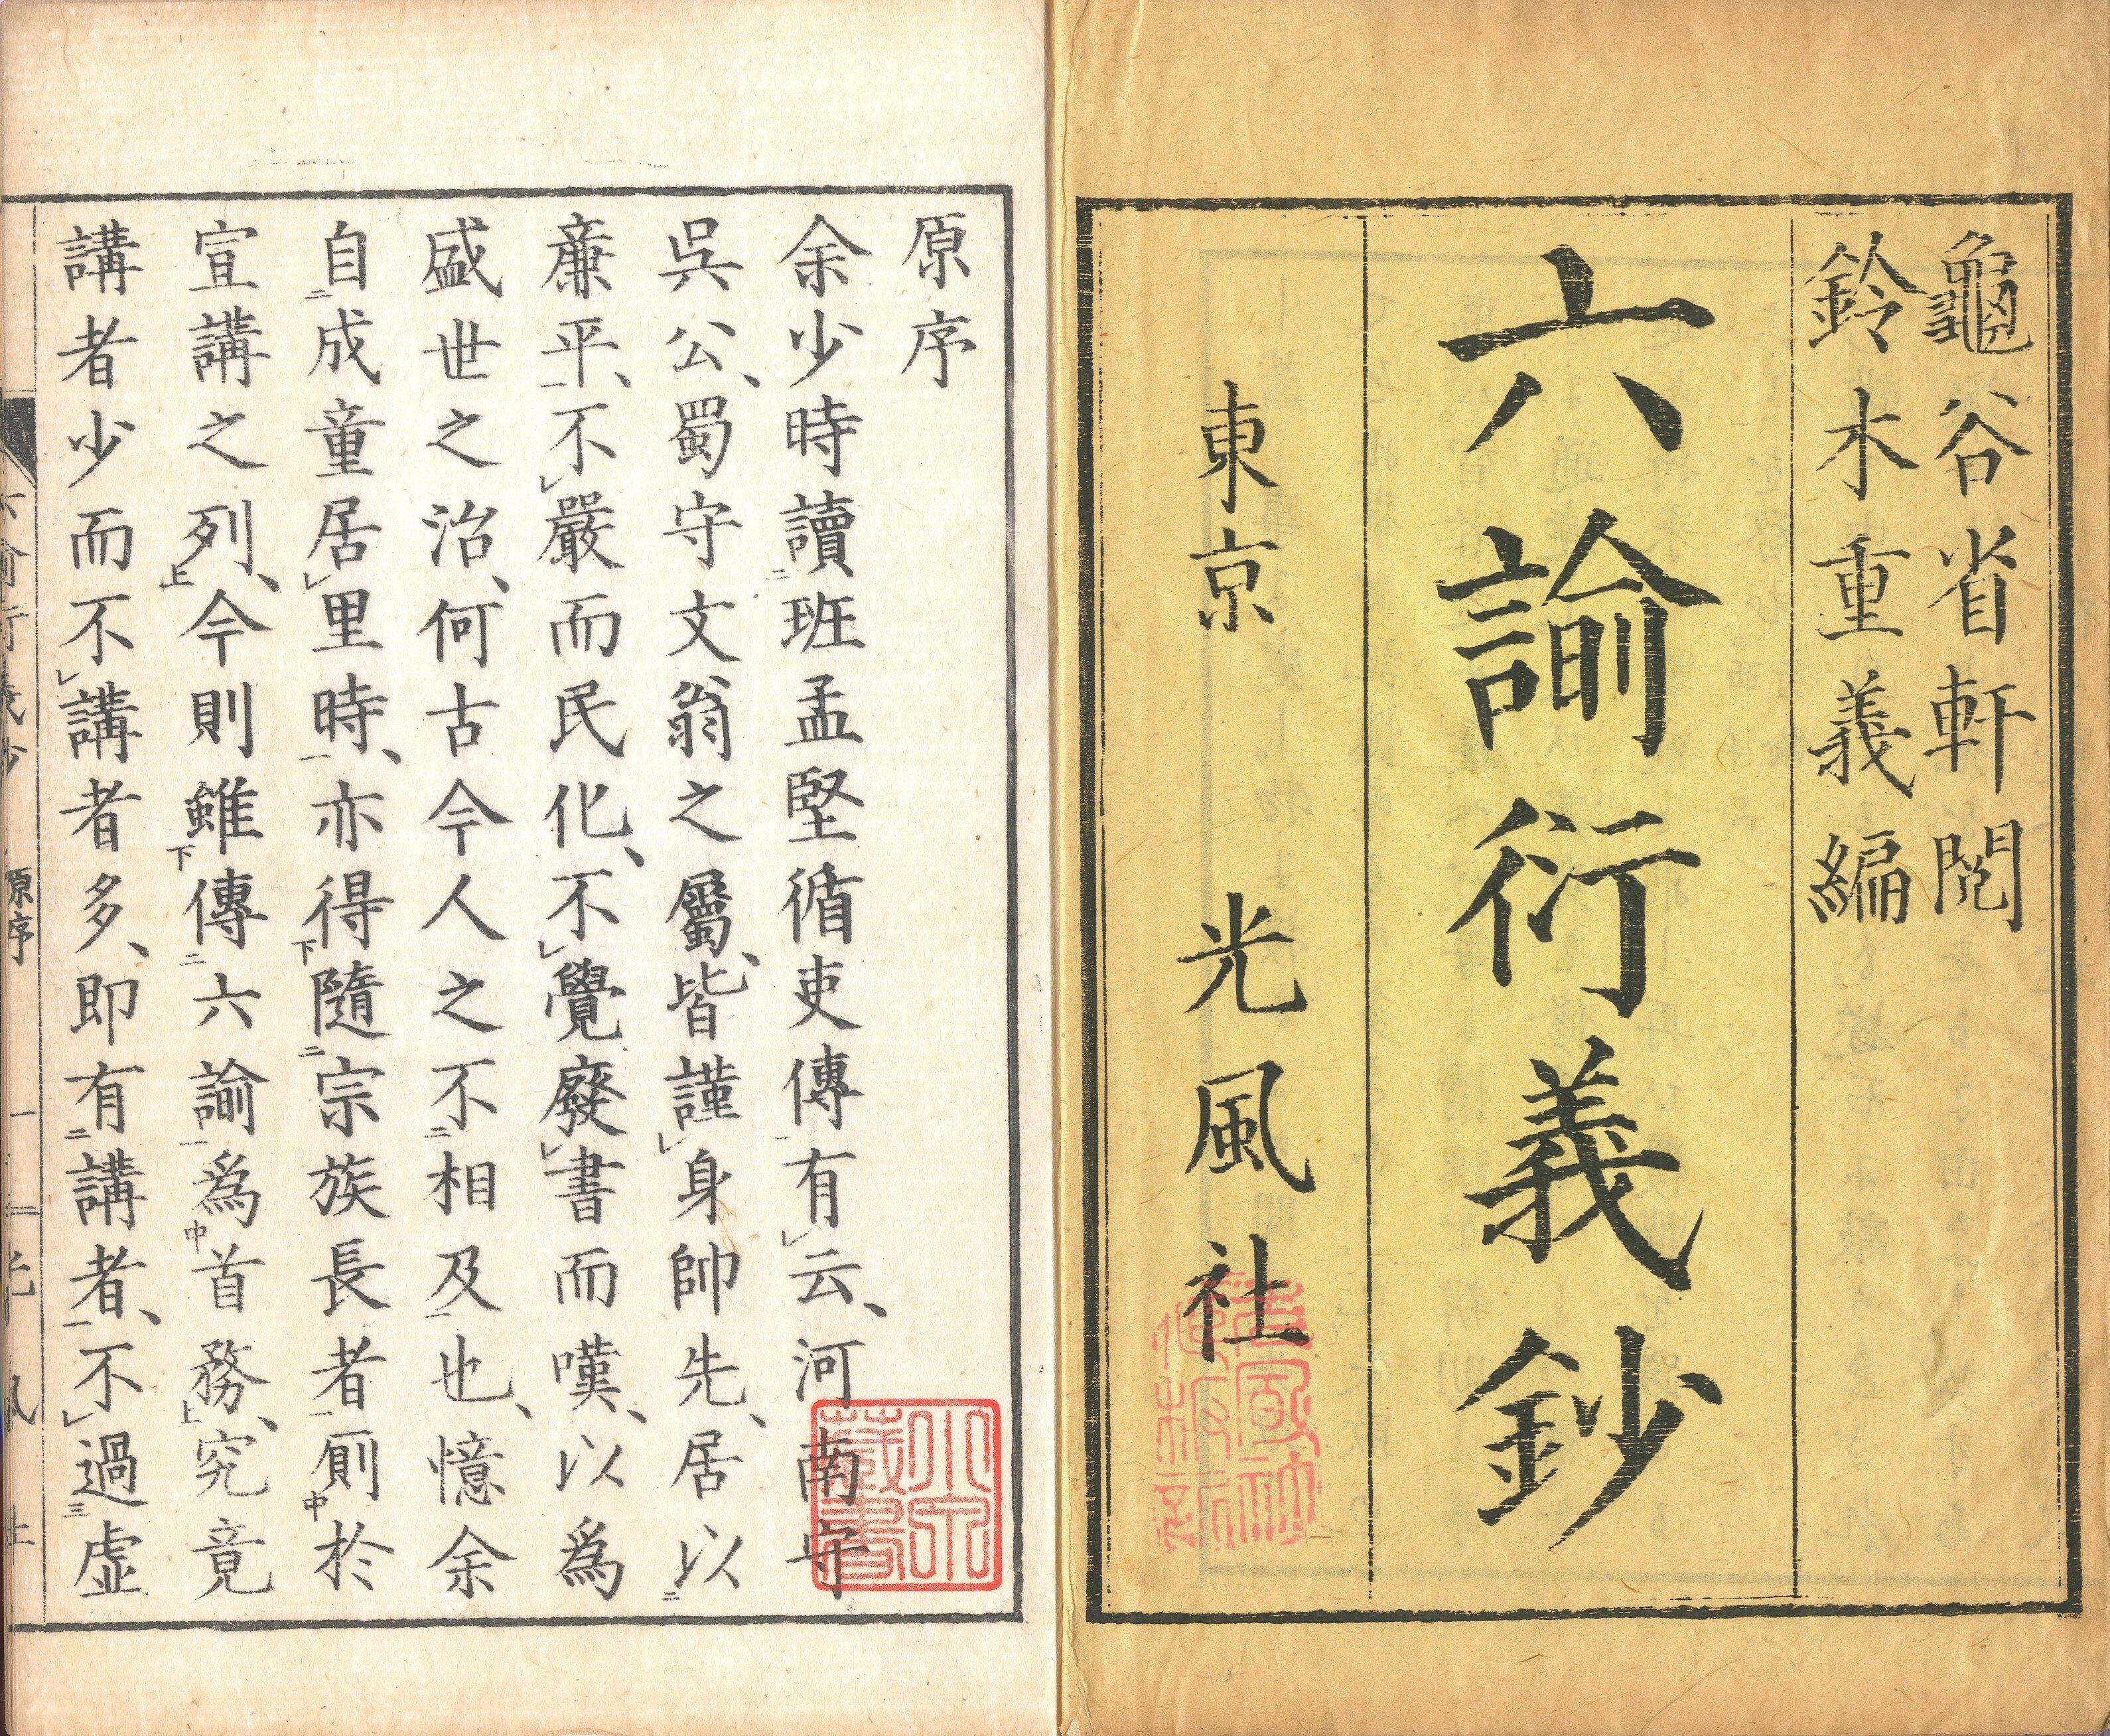 龜谷省軒閱
鈴木重義編
六諭衍義鈔
東京 光風社
原序
余少時讀班孟堅循吏傳有云、河南守
吳公、蜀守文翁之屬、皆謹身帥先、居以
廉平、不嚴而民化、不覺廢書而嘆、以爲
盛世之治、何古今人之不相及也、憶余
自成童居里時、亦得隨宗族長者厠於
宣講之列、今則雖傳六諭爲首務、究竟
講者少而不講者多、即有講者、不過虛
原序 一